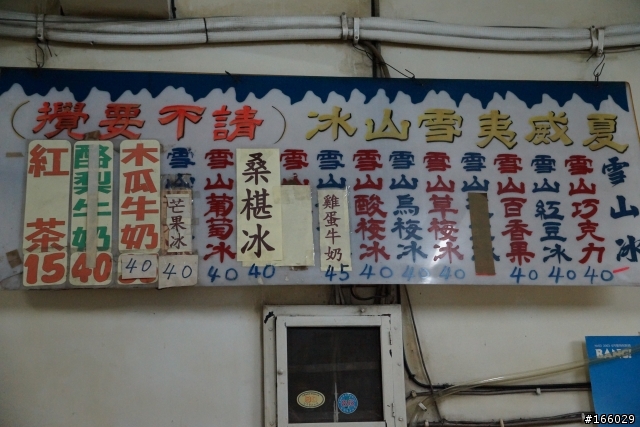 夏威夷雪山冰
（請不要攪）
雪山冰
雪山巧克力 40
雪山紅豆冰 40
雪山百香果 40
雪山
雪山草梅冰 40
雪山烏梅冰 40
雪山酸梅冰 40
雪山
雞蛋牛奶 45
雪
桑椹冰 40
雪山葡萄冰 40
雪
芒果冰 40
木瓜牛奶 40
酪梨牛奶 40
紅茶 15
BANG!
#166029